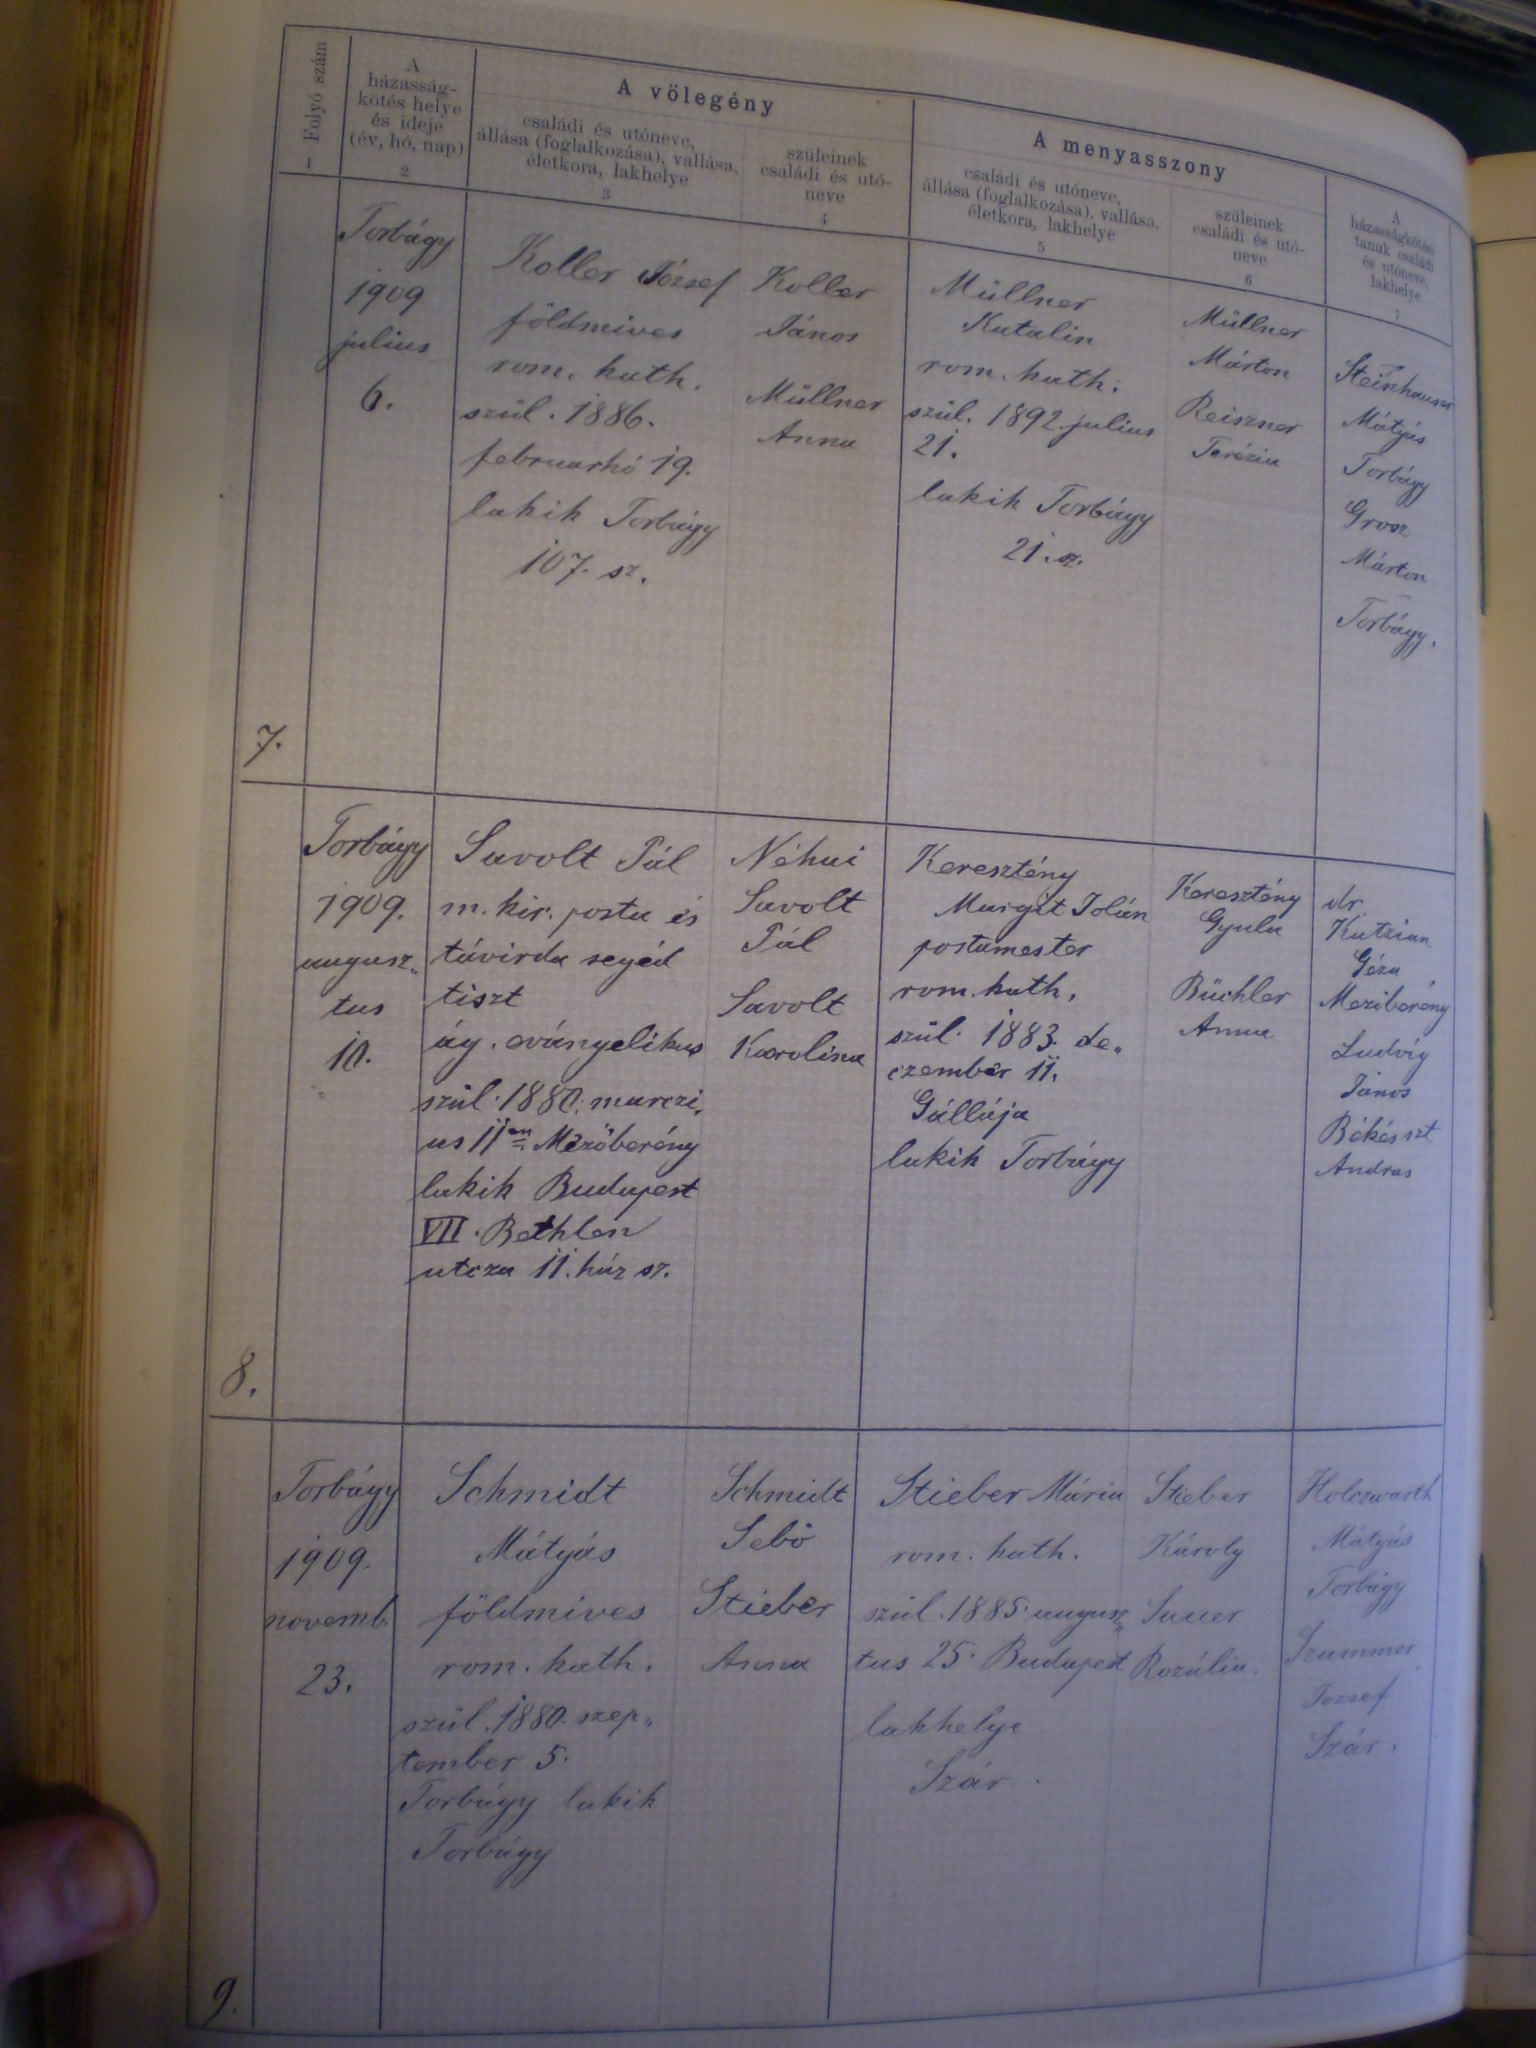 Folyó szám
1
A
házasság-
kötés helye
és ideje
(év, hó, nap)
2
A vőlegény
családi és utóneve,
állása (foglalkozása), vallása,
életkora, lakhelye
3
szüleinek
családi és utó-
neve
4
A menyasszony
családi és utóneve,
állása (foglalkozása), vallása,
életkora, lakhelye
5
szüleinek
családi és utó-
neve
6
A
házasságkötési
tanuk családi
és utóneve,
lakhelye
7
7.
Torbágy
1909
július
6.
Koller József
földmives
rom. kath.
szül. 1886.
februarhó 19.
lakik Torbágy
107. sz.
Koller
János
Müllner
Anna
Müllner
Katalin
rom. kath.
szül. 1892. julius
21.
lakik Torbágy
21. sz.
Müllner
Márton
Reiszner
Terézia
Steinhauser
Mátyás
Torbágy
Grosz
Márton
Torbágy.
8.
Torbágy
1909.
augusz„
tus
10.
Savolt Pál
m. kir. posta és
távirda segéd
tiszt
ág. evángelikus
szül. 1880. marczi.
us 11en Mezőberény
lakik Budapest
VII. Bethlen
utcza 11. ház sz.
Néhai
Savolt
Pál
Savolt
Karolina
Keresztény
Margit Jolán
postamester
rom. kath.
szül. 1883. de„
czember 11.
Gállája
lakik Torbágy
Keresztény
Gyula
Büchler
Anna
dr.
Kutzian
Géza
Meziberény
Ludvig
János
Békés szt
Andras
9.
Torbágy
1909.
novemb.
23.
Schmidt
Mátyás
földmives
rom. kath.
szül. 1880. szep„
tember 5.
Torbágy lakik
Torbágy
Schmidt
Sebő
Stieber
Anna
Stieber Mária
rom. kath.
szül. 1885. augusz„
tus 25. Budapest
lakhelye
Szár.
Stieber
Károly
Sauer
Rozália.
Holczwarth
Mátyás
Torbágy
Szummer
Jozsef
Szár.